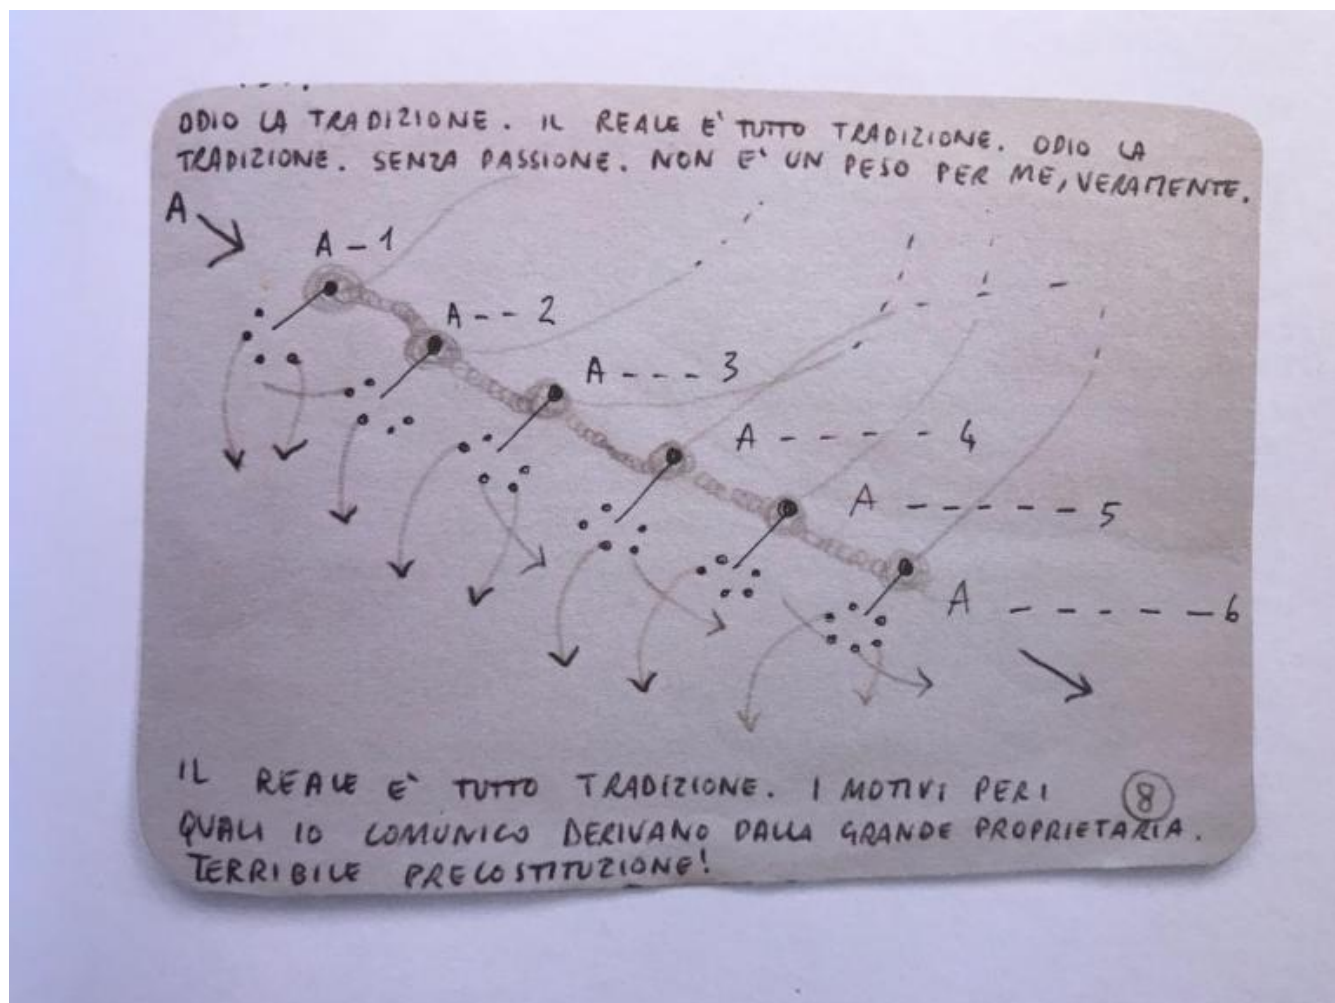 ODIO LA TRADIZIONE. IL REALE E' TUTTO TRADIZIONE. ODIO LA
TRADIZIONE. SENZA PASSIONE. NON E' UN PESO PER ME, VERAMENTE.
A
A - 1
A - - 2
A - - - 3
A - - - - 4
A - - - - - 5
A - - - - - - 6
IL REALE E' TUTTO TRADIZIONE. I MOTIVI PER I
8
QUALI IO COMUNICO DERIVANO DALLA GRANDE PROPRIETARIA.
TERRIBILE PRECOSTITUZIONE!